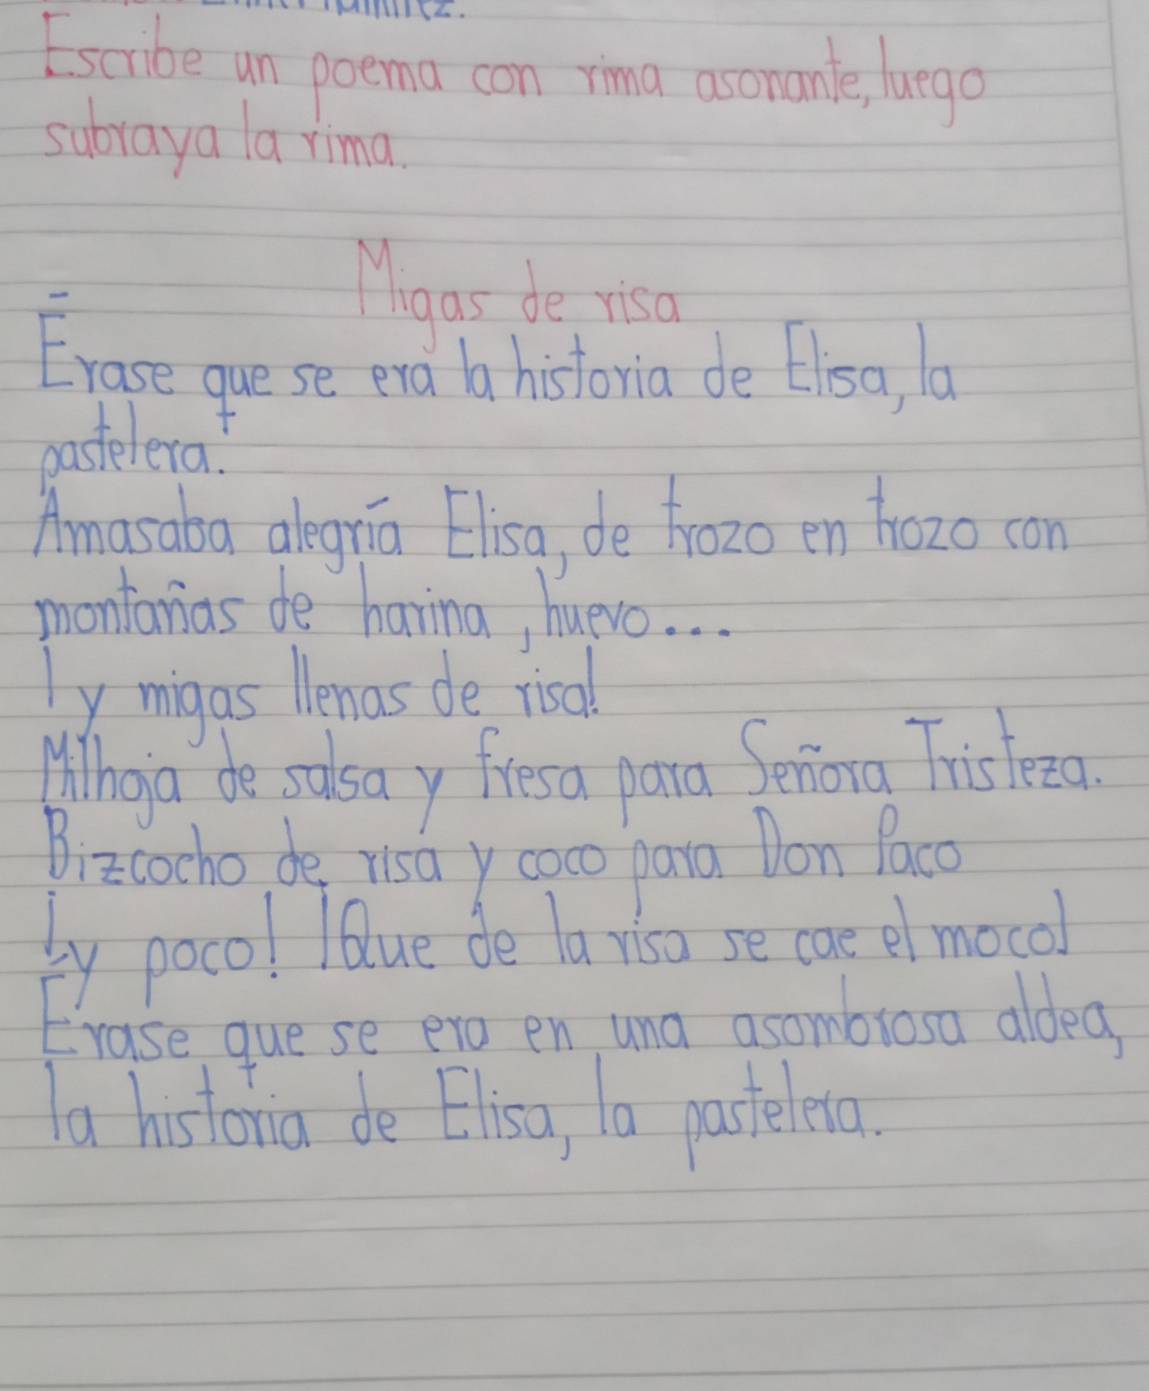 Escribe un poema con rima asonante, luego
subraya la rima.
Migas de risa
Érase que se era la historia de Elisa, la
pastelera.
Amasaba alegría Elisa, de trozo en trozo con
montañas de harina, huevo...
¡y migas llenas de risa!
Milhoja de salsa y fresa para Señora Tristeza.
Bizcocho de risa y coco para Don Paco
¡y poco! ¡Que de la risa se cae el moco!
Erase que se era en una asombrosa aldea,
la historia de Elisa, la pastelera.